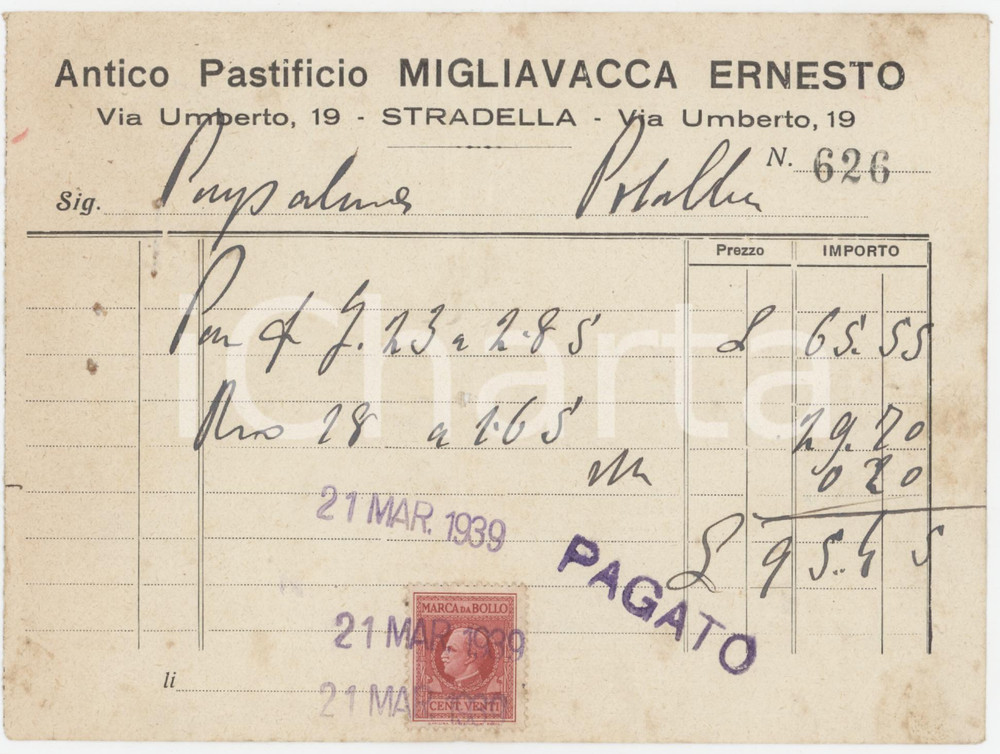 Antico Pastificio MIGLIAVACCA ERNESTO
Via Umberto, 19 - STRADELLA - Via Umberto, 19
N. 626
Sig.
Prezzo IMPORTO
23 a 2.85 £ 65.55
18 a 1.65 29.70
0 20
£ 95.45
21 MAR. 1939
PAGATO
MARCA DA BOLLO
21 MAR. 1939
CENT. VENTI
li
21 MAR. 1939
iCharta